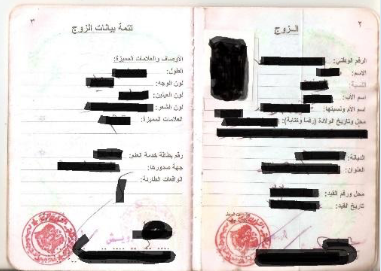 ٢
الزوج
الرقم الوطني:
الاسم:
النسبة:
اسم الأب:
اسم الأم ونسبتها:
محل وتاريخ الولادة (رقماً وكتابة):
الديانة:
العنوان:
محل ورقم القيد:
تاريخ القيد:
٣
تتمة بيانات الزوج
الأوصاف والعلامات المميزة:
الطول:
لون الوجه:
لون العينين:
لون الشعر:
العلامات المميزة:
رقم بطاقة خدمة العلم:
جهة صدورها:
الواقعات الطارئة: